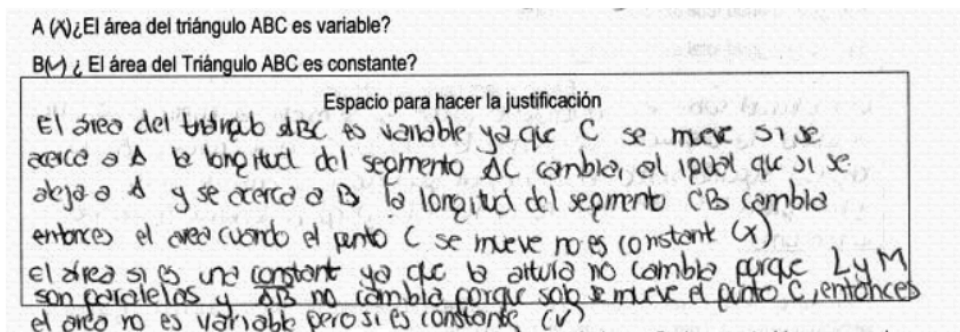 A (X) ¿El área del triángulo ABC es variable?
B(✓) ¿ El área del Triángulo ABC es constante?
Espacio para hacer la justificación
El área del triángulo ABC es variable ya que C se mueve si se
acerca a A la longitud del segmento AC cambia, al igual que si se
aleja a A y se acerca a B la longitud del segmento CB cambia
entonces el area cuando el punto C se mueve no es constant (X)
el área si es una constant ya que la altura no cambia porque L y M
son paralelas y AB no cambia porque solo se mueve el punto C, entonces
el area no es variable pero si es constante (v)